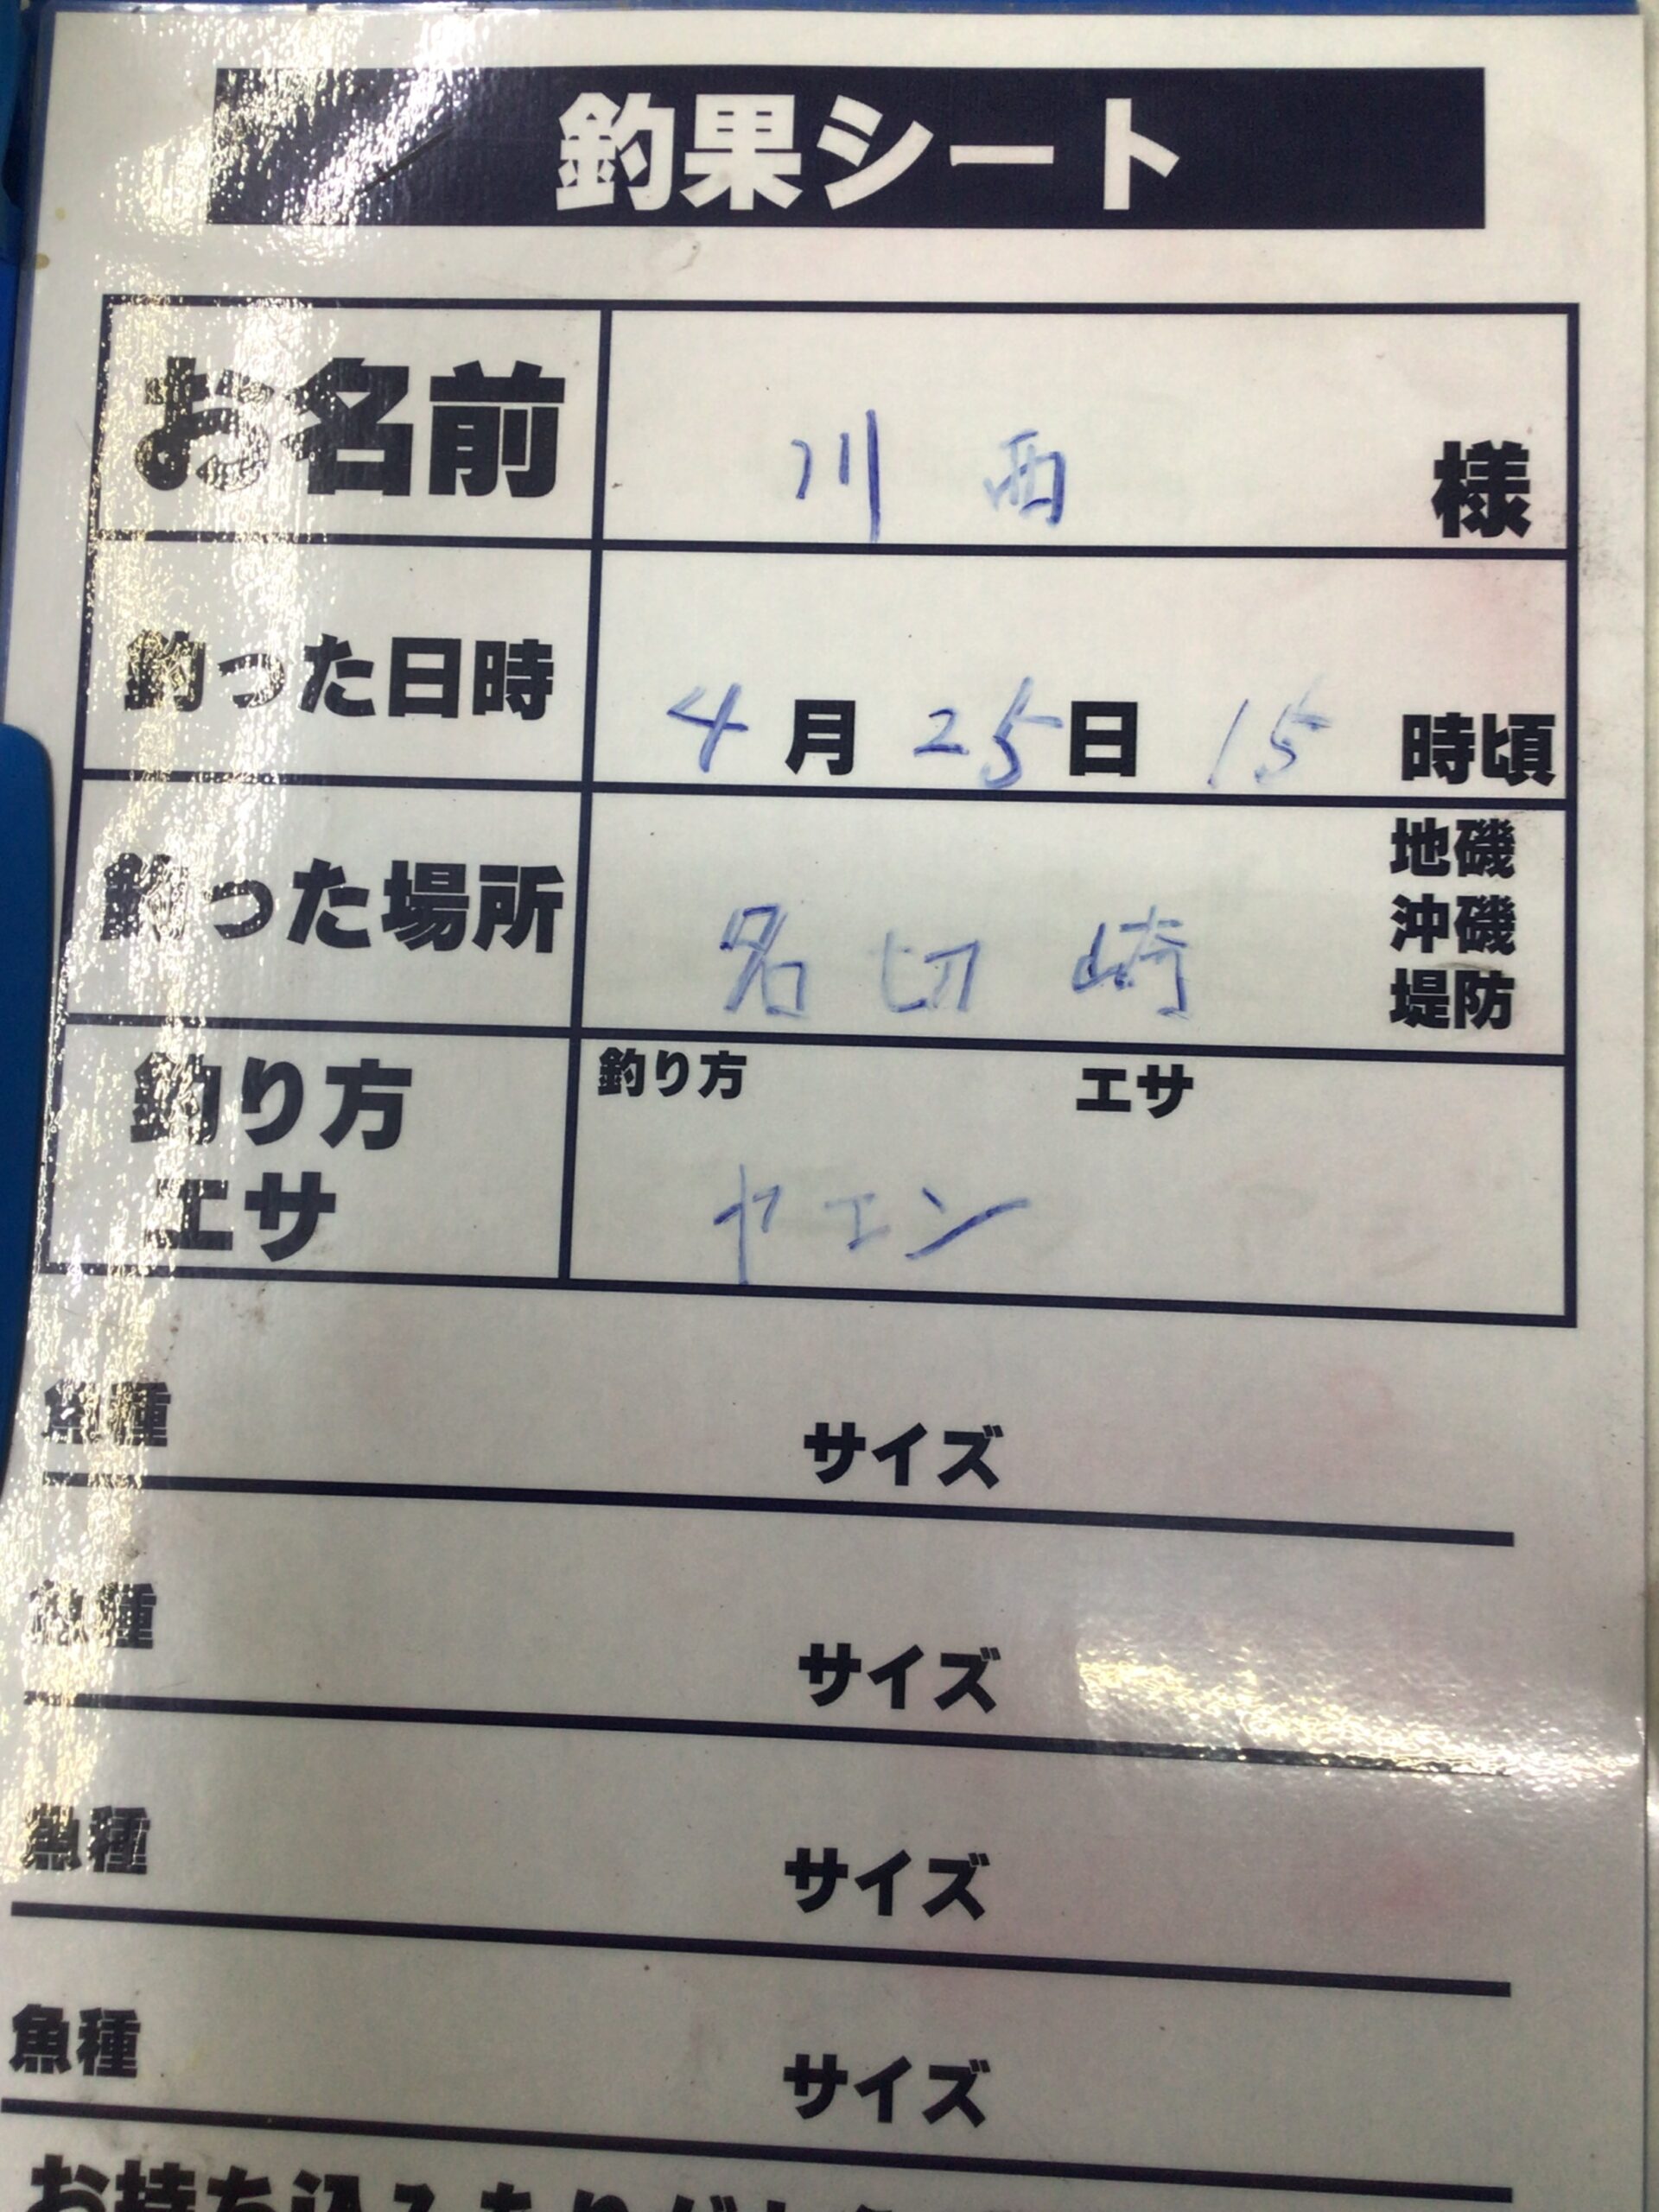 釣果シート
お名前 川西 様
釣った日時 4月25日 15時頃
釣った場所 名切崎 地磯
沖磯
堤防
釣り方 エサ
釣り方 エサ
ヤエン
魚種 サイズ
魚種 サイズ
魚種 サイズ
魚種 サイズ
お持ち込みありがとう